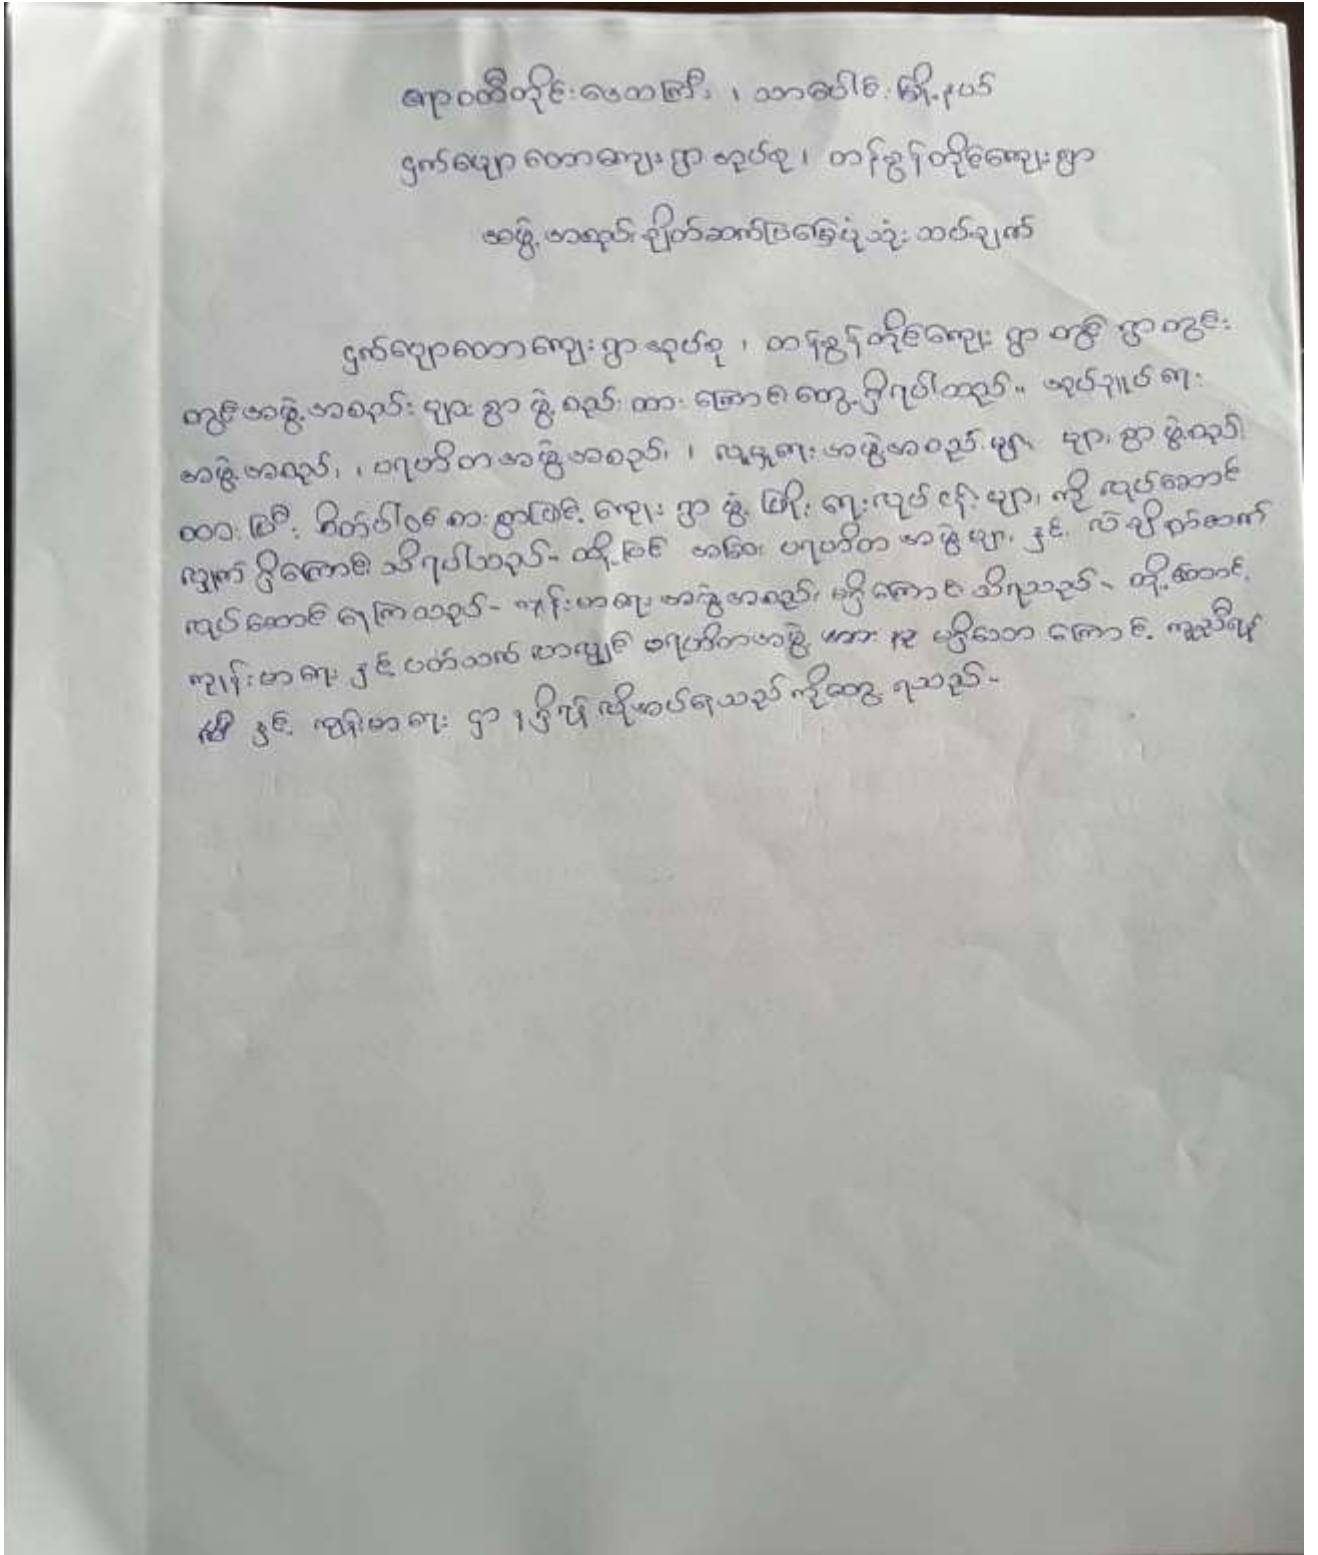 ဧရာဝတီတိုင်းဒေသကြီး ၊ သာပေါင်းမြို့နယ်
ငှက်ပျောတောကျေးရွာအုပ်စု ၊ တန်ခွန်တိုင်ကျေးရွာ
အဖွဲ့အစည်းချိတ်ဆက်ပြမြေပုံသုံးသပ်ချက်
ငှက်ပျောတောကျေးရွာအုပ်စု ၊ တန်ခွန်တိုင်ကျေးရွာတွင် ရွာတွင်း
တွင်အဖွဲ့အစည်းများစွာ ဖွဲ့စည်းထားကြောင်းတွေ့ရှိရပါသည်။ အုပ်ချုပ်ရေး
အဖွဲ့အစည်း ၊ ပရဟိတအဖွဲ့အစည်း ၊ လူမှုရေးအဖွဲ့အစည်းများ များစွာဖွဲ့စည်း
ထားပြီး စိတ်ပါဝင်စားစွာဖြင့် ကျေးရွာဖွံ့ဖြိုးရေးလုပ်ငန်းများကို လုပ်ဆောင်
လျှက်ရှိကြောင်း သိရပါသည်- ထို့ပြင် အခြားပရဟိတအဖွဲ့များနှင့် လဲချိတ်ဆက်
လုပ်ဆောင်ရကြသည်- ကျန်းမာရေးအဖွဲ့အစည်း မရှိကြောင်းသိရသည်- ထို့ကြောင့်
ကျန်းမာရေးနှင့်ပတ်သက်လာလျှင် ပရဟိတအဖွဲ့အား မရှိသောကြောင့် ကူညီရန်
နှင့် ကျန်းမာရေးဌာနရှိရန်လိုအပ်ရသည်ကိုတွေ့ရသည်-